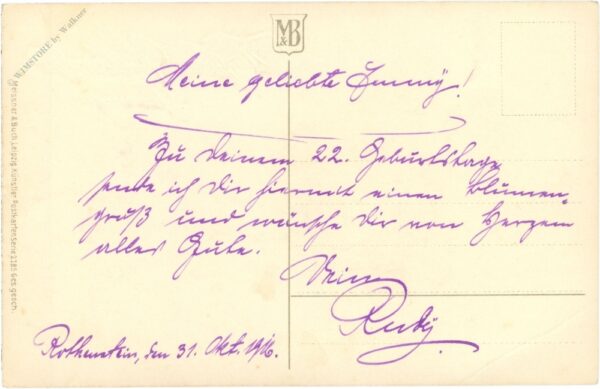 M&B
WIMSTORE by Walkner
Meissner & Buch, Leipzig. Künstler-Postkarten Serie 2185. Ges. gesch.
Meine geliebte Emmy!
Zu Deinem 22. Geburtstage
sende ich Dir hiermit einen Blumen-
gruß und wünsche Dir von Herzen
alles Gute.
Dein
Rudy.
Rothenstein, den 31. Okt. 1916.